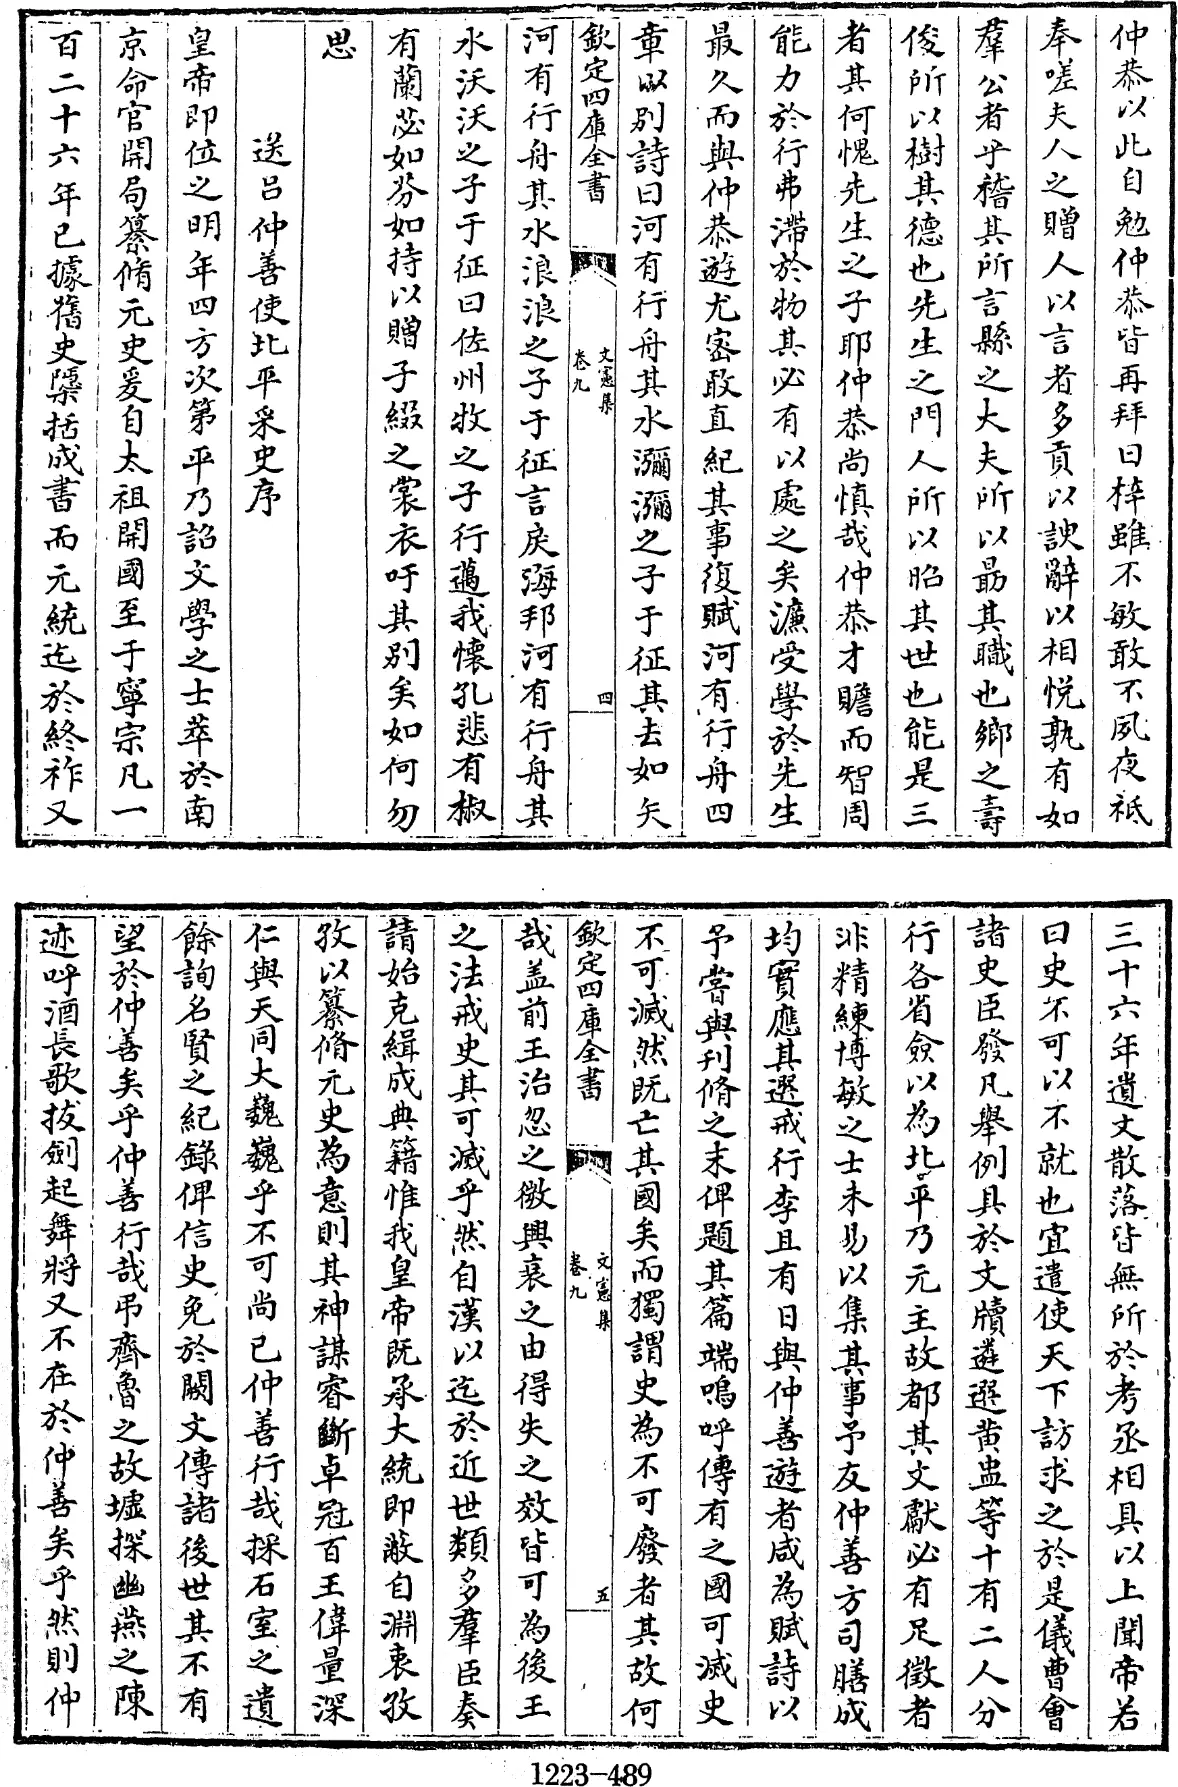 仲恭以此自勉仲恭皆再拜曰梓雖不敏敢不夙夜祗
奉嗟夫人之贈人以言者多貢以諛辭以相悦孰有如
羣公者乎稽其所言縣之大夫所以勗其職也鄉之壽
俊所以樹其德也先生之門人所以昭其世也能是三
者其何愧先生之子耶仲恭尚慎哉仲恭才贍而智周
能力於行弗滯於物其必有以處之矣濂受學於先生
最久而與仲恭遊尤密敢直紀其事復賦河有行舟四
章以別詩曰河有行舟其水瀰瀰之子于征其去如矢
欽定四庫全書
文憲集
卷九
四
河有行舟其水浪浪之子于征言戾海邦河有行舟其
水沃沃之子于征曰佐州牧之子行邁我懷孔悲有椒
有蘭苾如芬如持以贈子綴之裳衣吁其別矣如何勿
思
送吕仲善使北平采史序
皇帝即位之明年四方次第平乃詔文學之士萃於南
京命官開局纂脩元史爰自太祖開國至于寧宗凡一
百二十六年已據舊史檃括成書而元統迄於終祚又
三十六年遺文散落皆無所於考丞相具以上聞帝若
曰史不可以不就也宜遣使天下訪求之於是儀曹會
諸史臣發凡舉例具於文牘遴選黄盅等十有二人分
行各省僉以為北平乃元主故都其文獻必有足徵者
非精練博敏之士未易以集其事予友仲善方司膳成
均實應其選戒行李且有日與仲善遊者咸為賦詩以
予嘗與刋脩之末俾題其篇端嗚呼傳有之國可滅史
不可滅然既亡其國矣而獨謂史為不可廢者其故何
欽定四庫全書
文憲集
卷九
五
哉盖前王治忽之微興衰之由得失之效皆可為後王
之法戒史其可滅乎然自漢以迄於近世類多羣臣奏
請始克緝成典籍惟我皇帝既承大統即啟自淵衷孜
孜以纂脩元史為意則其神謀睿斷卓冠百王偉量深
仁與天同大巍巍乎不可尚已仲善行哉採石室之遺
餘詢名賢之紀錄俾信史免於闕文傳諸後世其不有
望於仲善矣乎仲善行哉弔齊魯之故墟探幽燕之陳
迹呼酒長歌拔劍起舞將又不在於仲善矣乎然則仲
1223-489